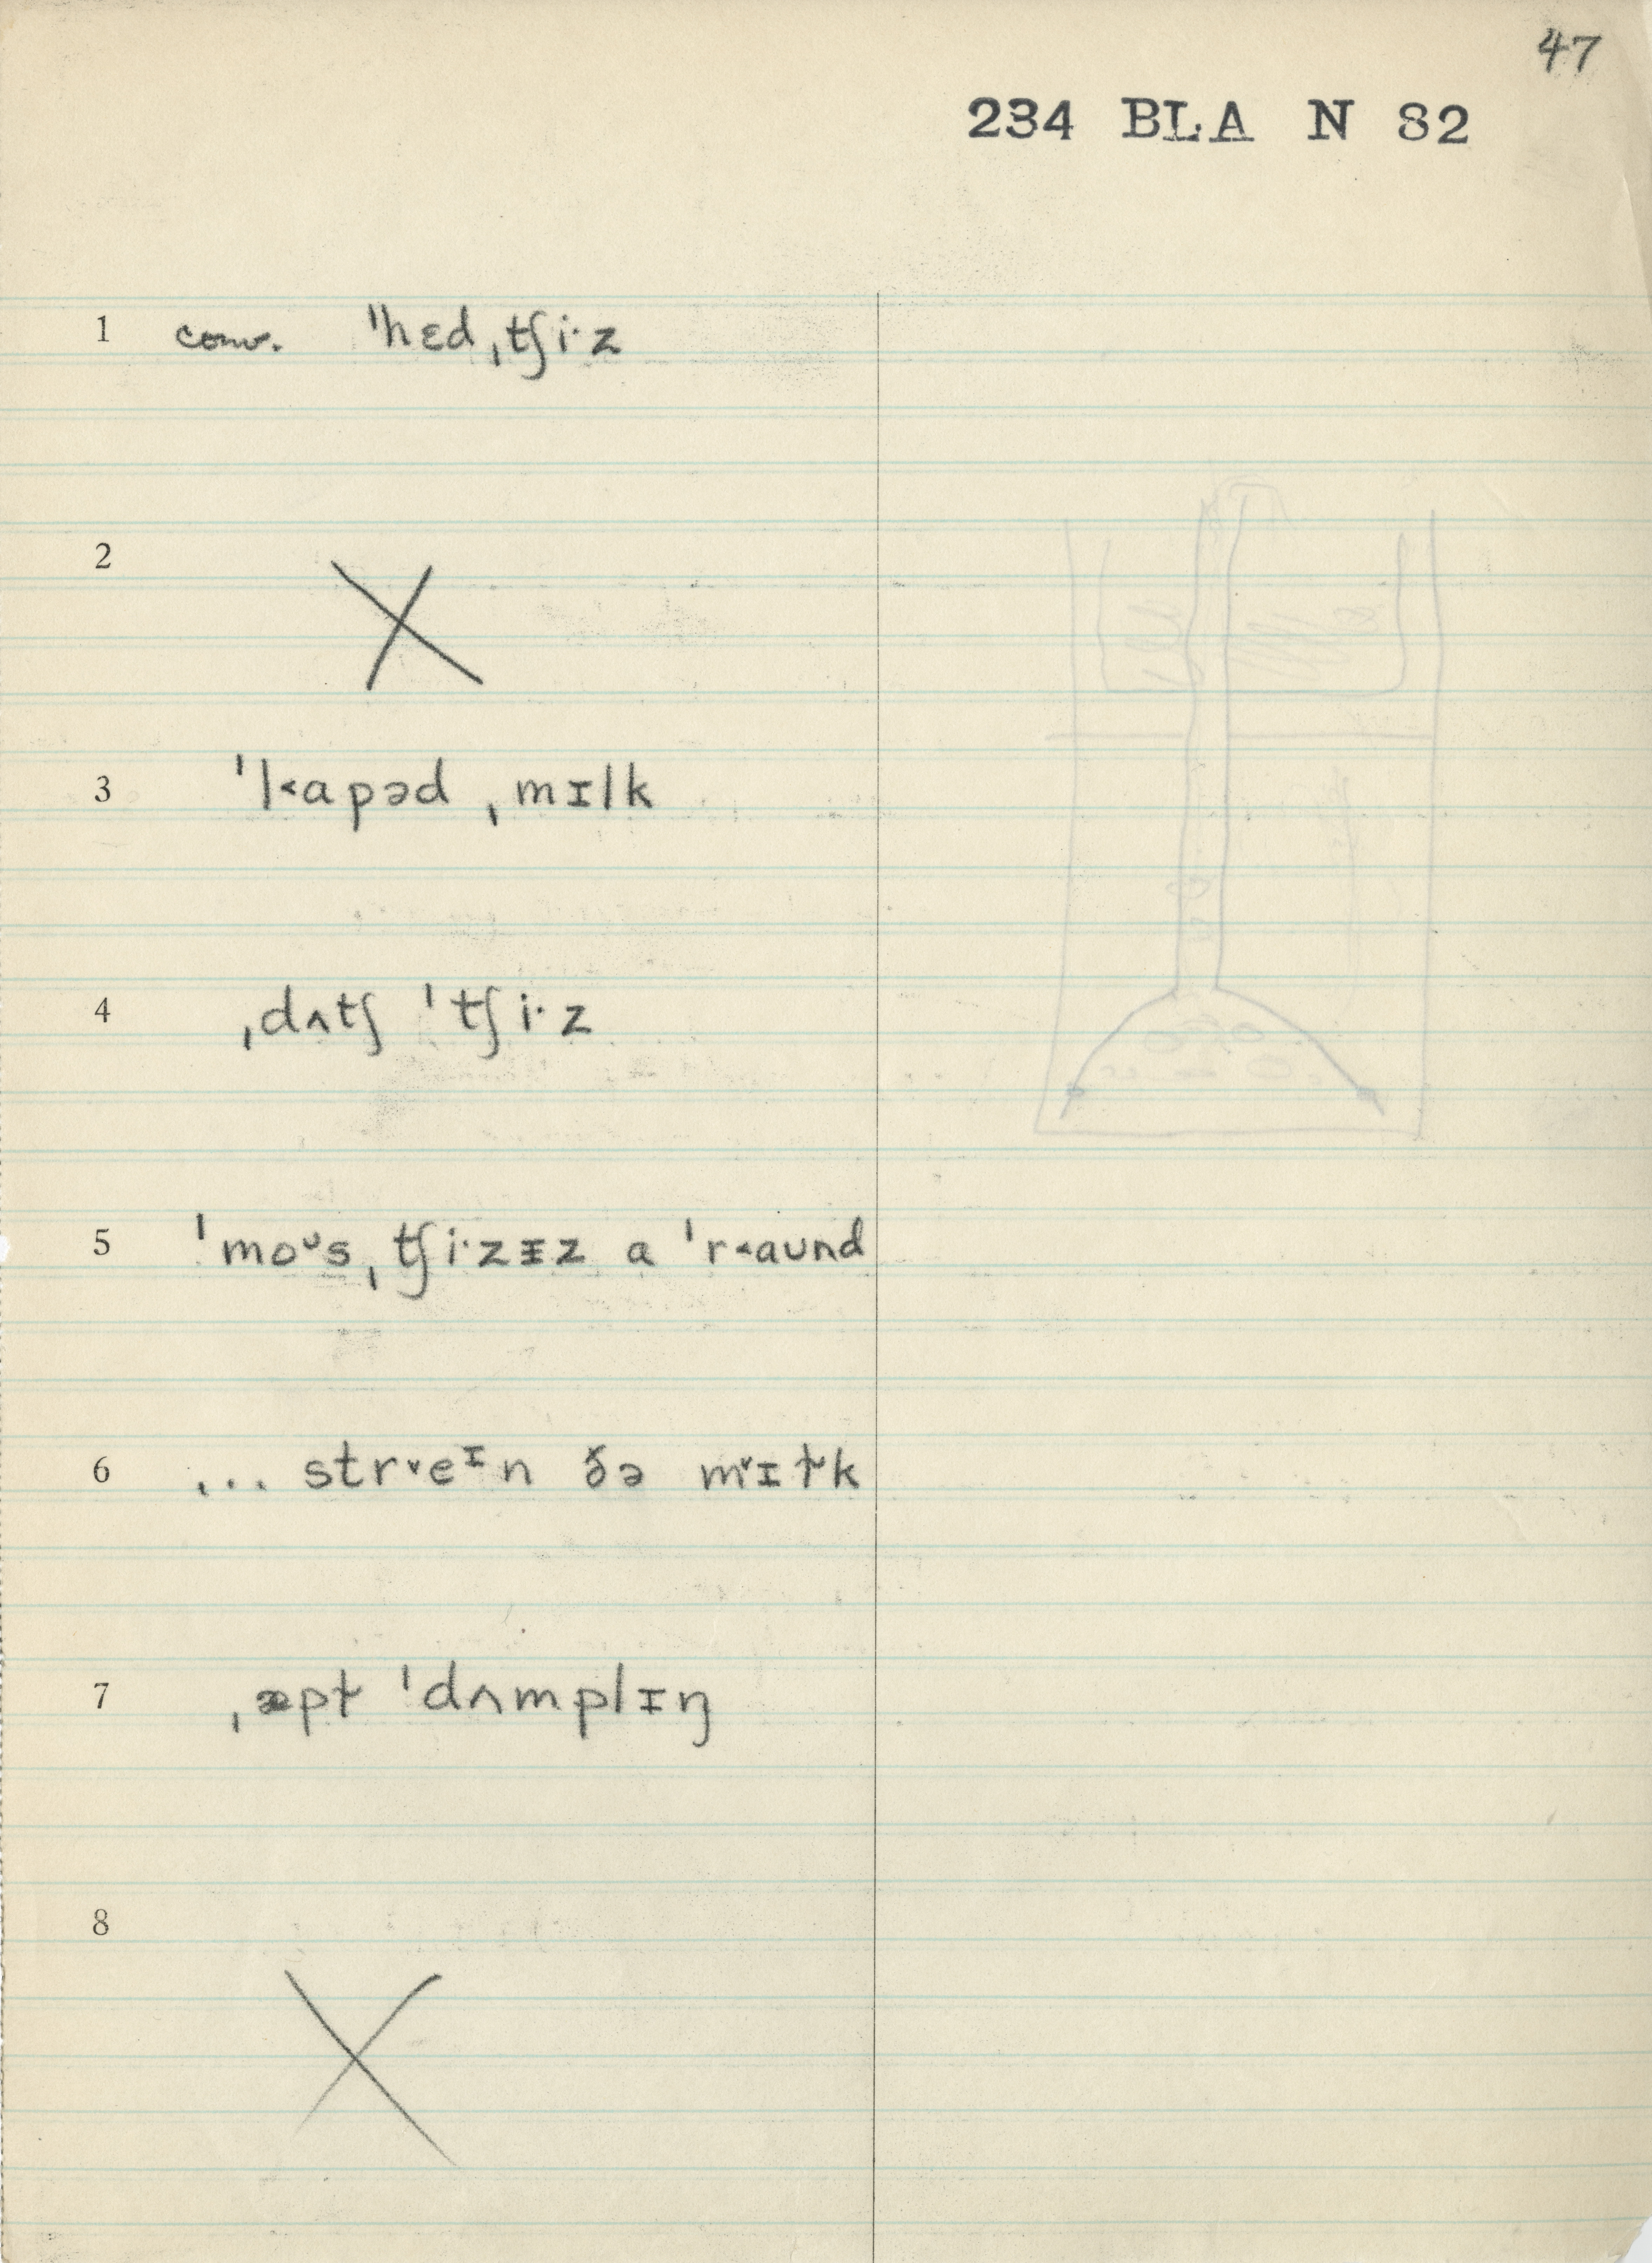 47
234 BLA N 82
1 conv. ˈhɛdˌtʃi·z
2
3 ˈl˂apəd ˌmɪlk
4 ˌdʌtʃ ˈtʃi·z
5 ˈmoᶷsˌtʃi·zᵻz a ˈr˂aʊnd
6 ... str˅eᶦn ðə m˅ɪɫ˅k
7 ˌæpɫ ˈdʌmplɪŋ
8